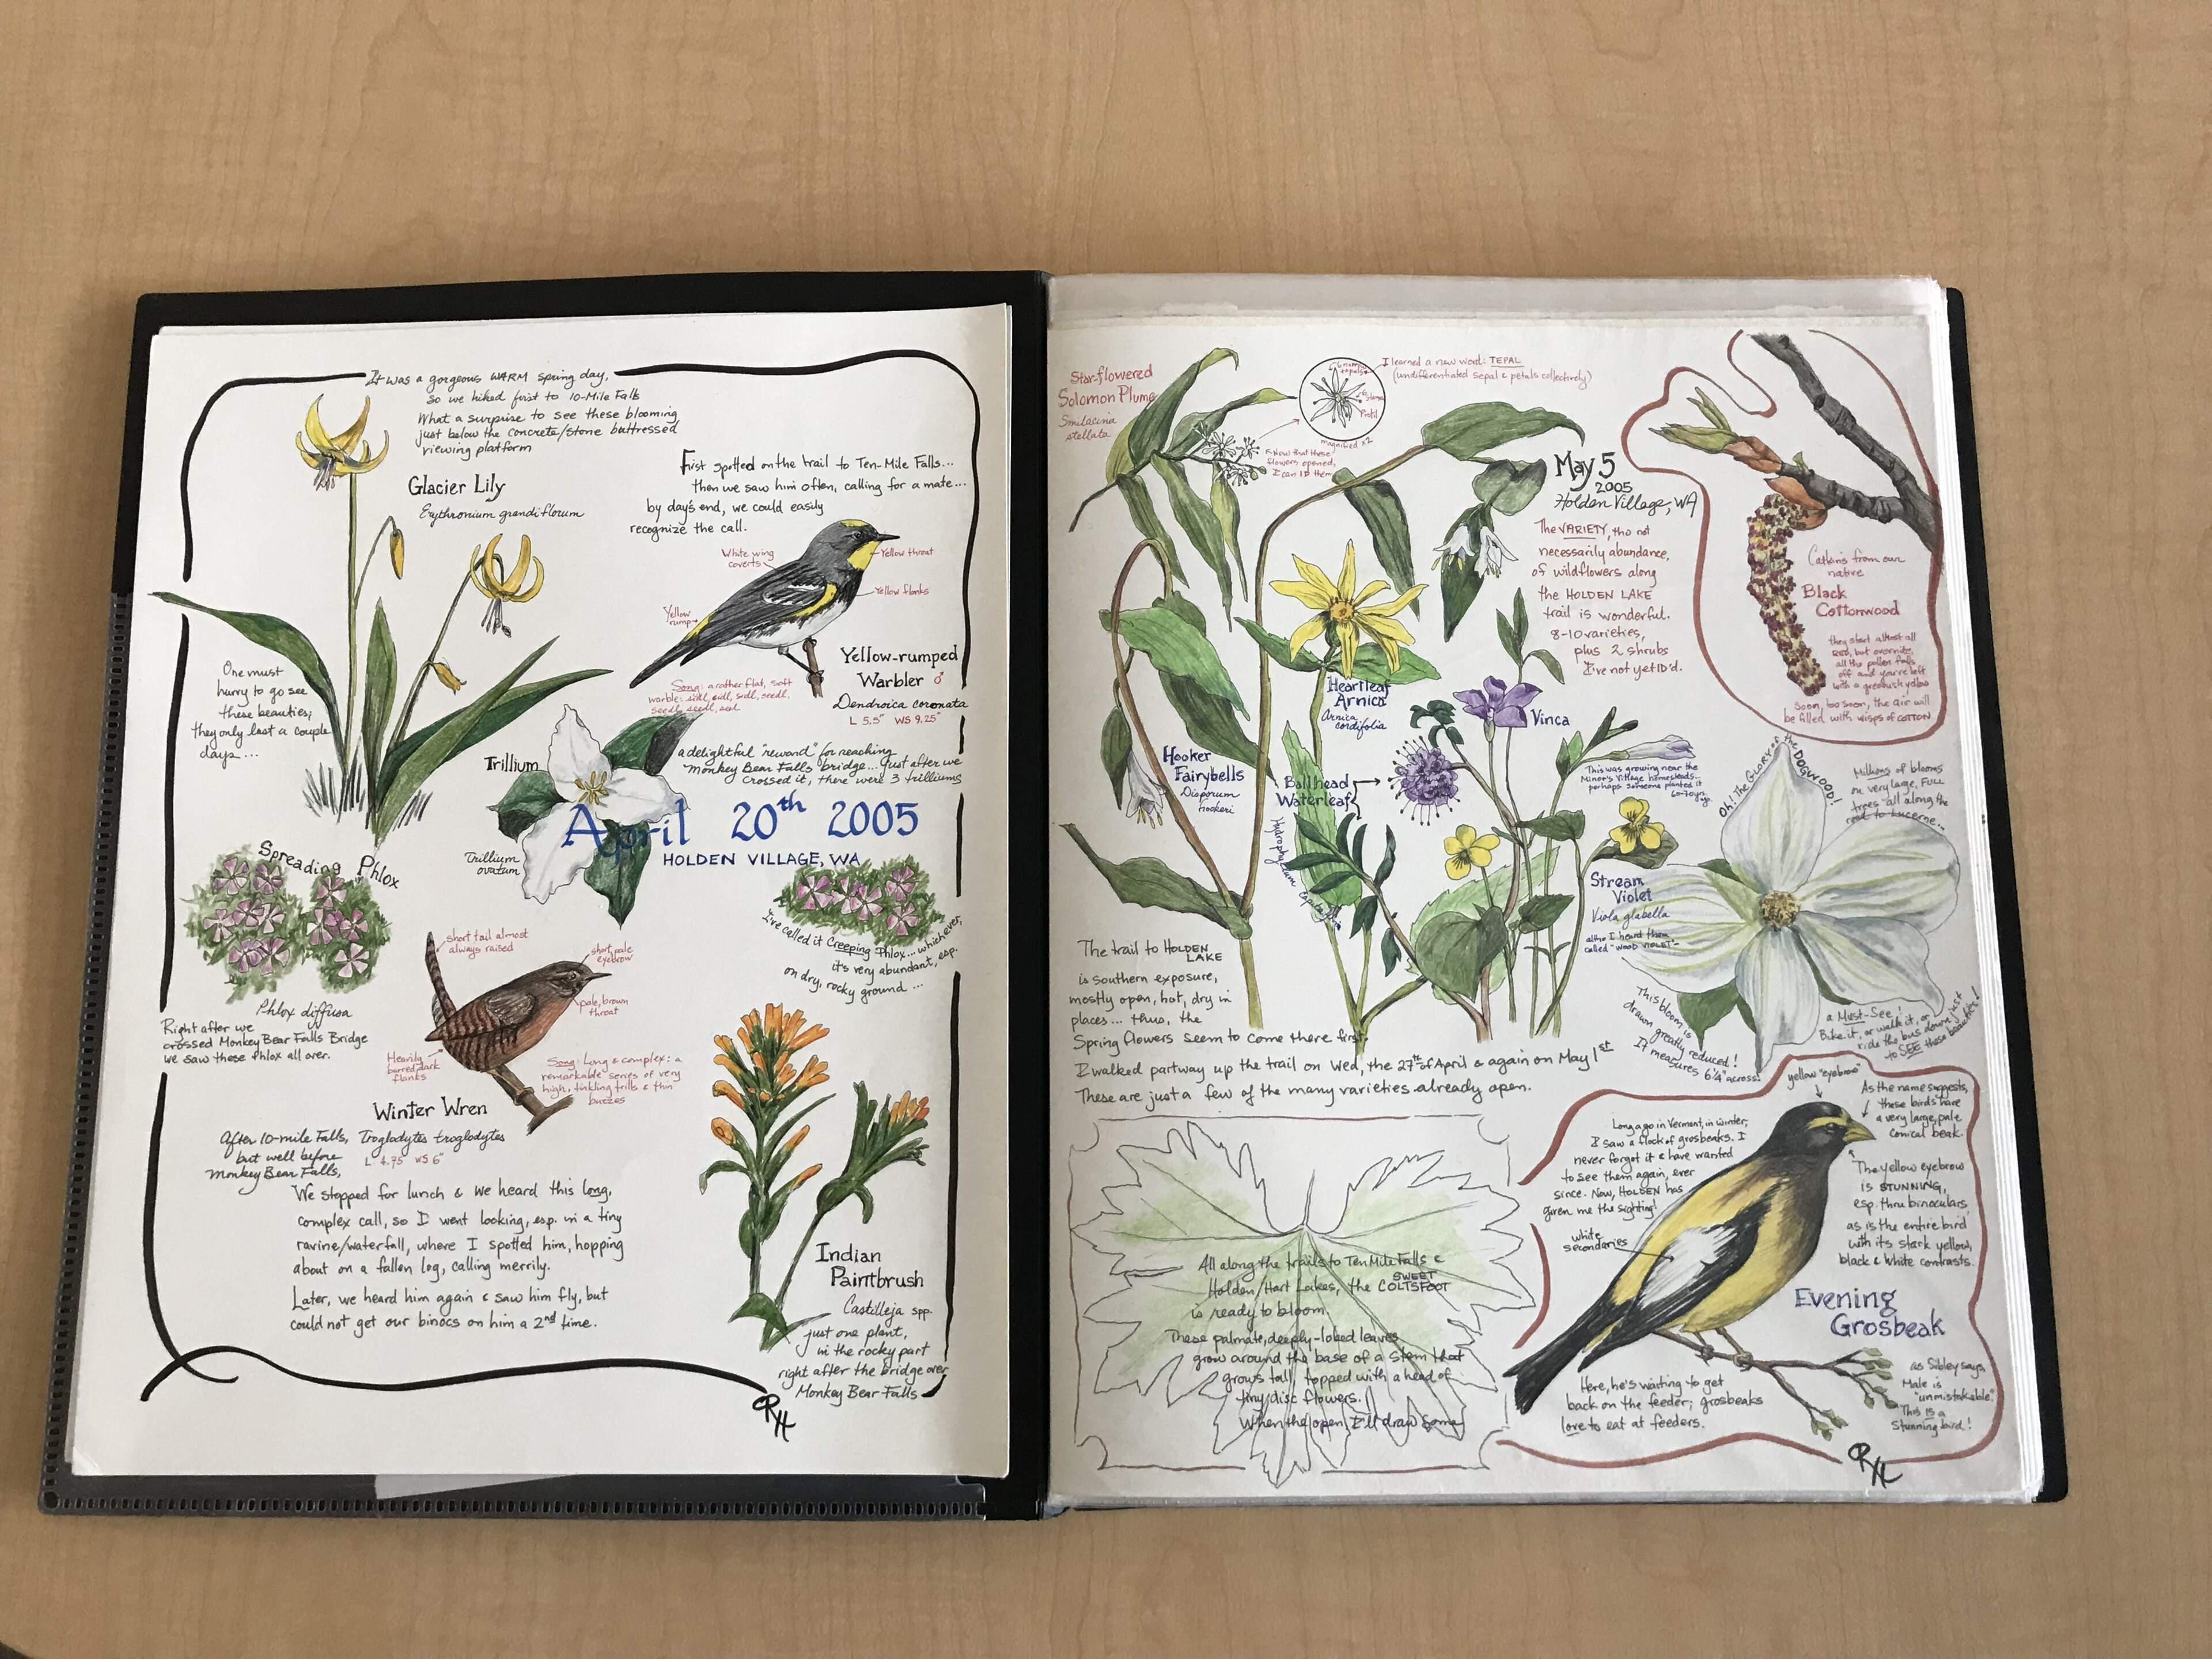 It was a gorgeous WARM spring day,
so we hiked first to 10-Mile Falls
What a surprise to see these blooming
just below the concrete/stone buttressed
viewing platform
Glacier Lily
Erythronium grandiflorum
One must
hurry to go see
these beauties,
they only last a couple
days...
First spotted on the trail to Ten-Mile Falls...
then we saw him often, calling for a mate...
by day's end, we could easily
recognize the call.
White wing
coverts
Yellow throat
Yellow flanks
Yellow
rump
Yellow-rumped
Warbler ♂
Dendroica coronata
L 5.5" WS 9.25"
Song: a rather flat, soft
warble: sidl, sidl, sidl, seedl,
seedl, seedl, sedl
Trillium
Trillium
ovatum
a delightful "reward" for reaching
Monkey Bear Falls bridge... Just after we
crossed it, there were 3 trilliums
April 20th 2005
HOLDEN VILLAGE, WA
Spreading Phlox
Phlox diffusa
Right after we
crossed Monkey Bear Falls Bridge
we saw these phlox all over.
I've called it Creeping Phlox... whichever,
it's very abundant, esp.
on dry, rocky ground...
short tail almost
always raised
short, pale
eyebrow
pale, brown
throat
Heavily
barred dark
flanks
Song: Long & complex: a
remarkable series of very
high, tinkling trills & thin
buzzes
Winter Wren
Troglodytes troglodytes
L 4.75" WS 6"
After 10-mile Falls,
but well before
Monkey Bear Falls,
We stopped for lunch & we heard this long,
complex call, so I went looking, esp. in a tiny
ravine/waterfall, where I spotted him, hopping
about on a fallen log, calling merrily.
Later, we heard him again & saw him fly, but
could not get our binocs on him a 2nd time.
Indian
Paintbrush
Castilleja spp.
just one plant,
in the rocky part
right after the bridge over
Monkey Bear Falls
RH
Star-flowered
Solomon Plume
Smilacina
stellata
I learned a new word: TEPAL
(undifferentiated sepal & petals collectively)
Pistil
magnified x2
Now that these
flowers opened,
I can ID them
May 5
2005
Holden Village, WA
The VARIETY, tho not
necessarily abundance,
of wildflowers along
the HOLDEN LAKE
trail is wonderful.
8-10 varieties,
plus 2 shrubs
I've not yet ID'd.
Catkins from our
native
Black
Cottonwood
they start almost all
RED, but overnite,
all the pollen falls
off and you're left
with a greenish yellow
Soon, too soon, the air will
be filled with wisps of COTTON
Heartleaf
Arnica
Arnica
cordifolia
Vinca
This was growing near the
Miner's Village homesteads...
perhaps someone planted it
60-70 yrs. ago
Hooker
Fairybells
Disporum
hookeri
Ballhead
Waterleaf
Hydrophyllum capitatum
Stream
Violet
Viola glabella
altho I heard them
called "WOOD VIOLET"
Oh! The GLORY of the DOGWOOD!
Millions of blooms
on very large, FULL
trees all along the
road to Lucerne...
This bloom is
drawn greatly reduced!
It measures 6¼" across!
a Must-See!
Bike it, or walk it, or
ride the bus down just
to SEE these beauties!
The trail to HOLDEN
LAKE
is southern exposure,
mostly open, hot, dry in
places... thus, the
Spring flowers seem to come there first.
I walked partway up the trail on Wed, the 27th of April & again on May 1st
These are just a few of the many varieties already open.
All along the trails to Ten Mile Falls &
Holden/Hart Lakes, the SWEET COLTSFOOT
is ready to bloom.
These palmate, deeply-lobed leaves
grow around the base of a stem that
grows tall, topped with a head of
tiny disc flowers.
When the open, I'll draw some
yellow "eyebrow"
As the name suggests,
these birds have
a very large, pale
conical beak.
Long ago in Vermont, in winter,
I saw a flock of grosbeaks. I
never forgot it & have wanted
to see them again, ever
since. Now, HOLDEN has
given me the sighting!
white
secondaries
The yellow eyebrow
is STUNNING,
esp. thru binoculars,
as is the entire bird
with its stark yellow,
black & white contrasts.
Evening
Grosbeak
Here, he's waiting to get
back on the feeder; grosbeaks
love to eat at feeders.
as Sibley says,
Male is
"unmistakable."
This is a
Stunning bird!
RH